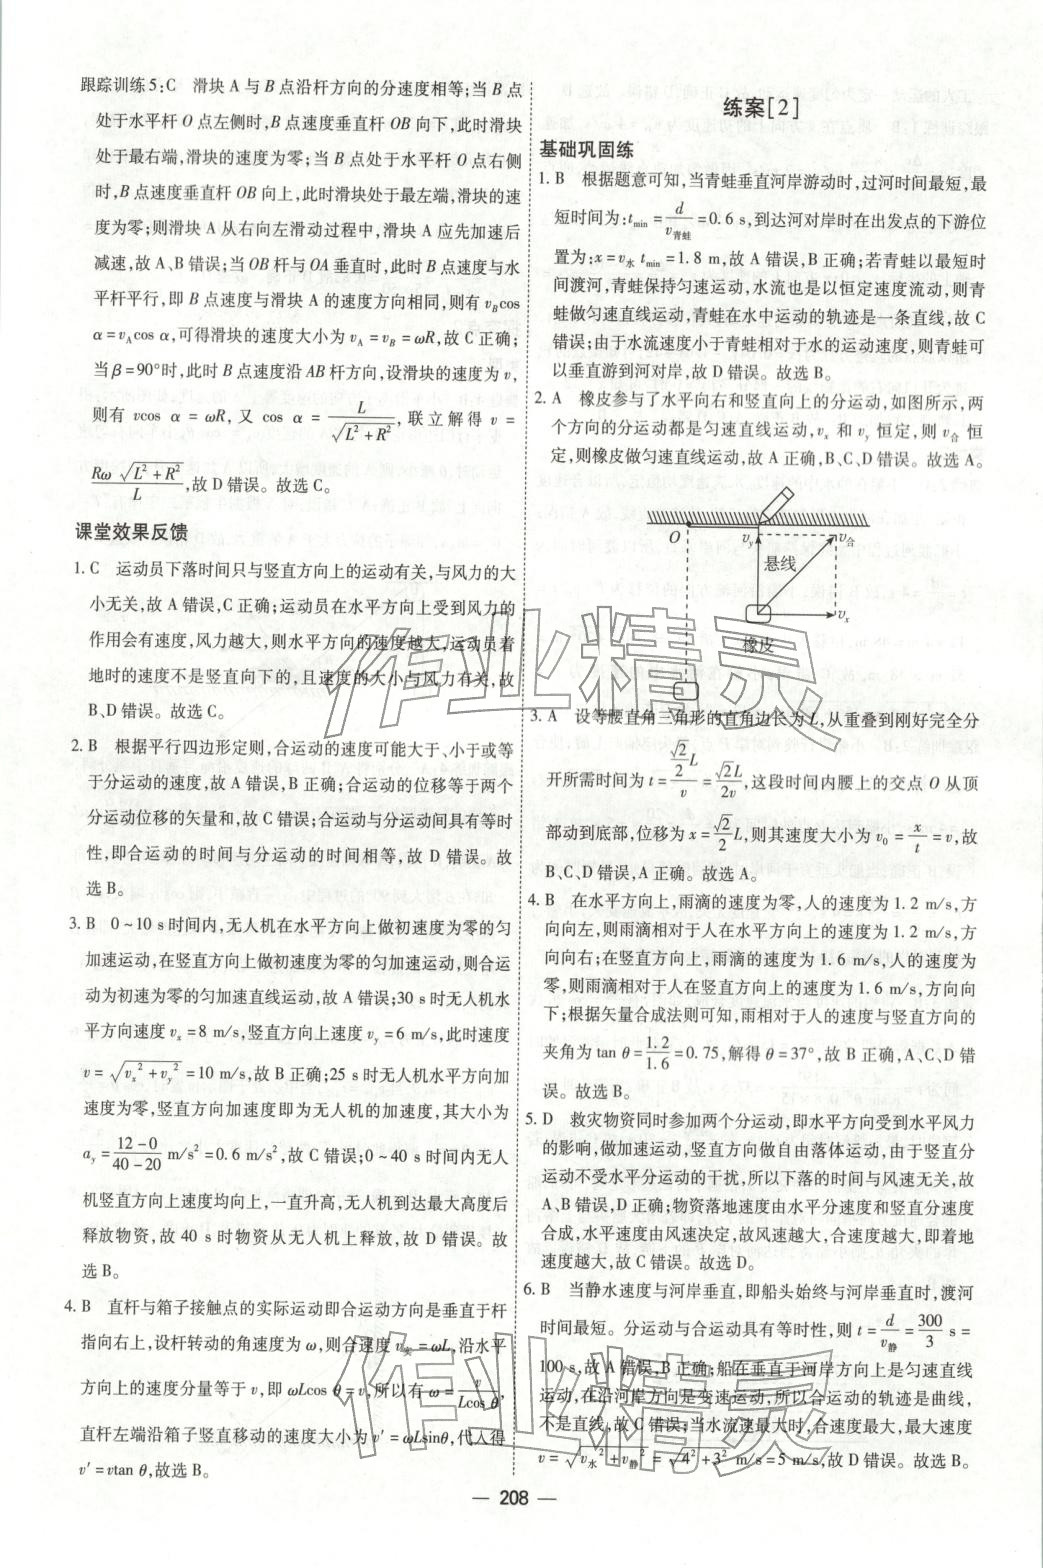 跟踪训练5:C 滑块 A 与 B 点沿杆方向的分速度相等;当 B 点
处于水平杆 O 点左侧时,B 点速度垂直杆 OB 向下,此时滑块
处于最右端,滑块的速度为零;当 B 点处于水平杆 O 点右侧
时,B 点速度垂直杆 OB 向上,此时滑块处于最左端,滑块的速
度为零;则滑块 A 从右向左滑动过程中,滑块 A 应先加速后
减速,故 A、B 错误;当 OB 杆与 OA 垂直时,此时 B 点速度与水
平杆平行,即 B 点速度与滑块 A 的速度方向相同,则有 v_B cos
α=v_A cos α,可得滑块的速度大小为 v_A=v_B=ωR,故 C 正确;
当 β=90°时,此时 B 点速度沿 AB 杆方向,设滑块的速度为 v,
则有 vcos α=ωR,又 cos α=L/√(L²+R²),联立解得 v=
Rω√(L²+R²)/L,故 D 错误。故选 C。
课堂效果反馈
1. C 运动员下落时间只与竖直方向上的运动有关,与风力的大
小无关,故 A 错误,C 正确;运动员在水平方向上受到风力的
作用会有速度,风力越大,则水平方向的速度越大,运动员着
地时的速度不是竖直向下的,且速度的大小与风力有关,故
B、D 错误。故选 C。
2. B 根据平行四边形定则,合运动的速度可能大于、小于或等
于分运动的速度,故 A 错误,B 正确;合运动的位移等于两个
分运动位移的矢量和,故 C 错误;合运动与分运动间具有等时
性,即合运动的时间与分运动的时间相等,故 D 错误。故
选 B。
3. B 0~10 s 时间内,无人机在水平方向上做初速度为零的匀
加速运动,在竖直方向上做初速度为零的匀加速运动,则合运
动为初速为零的匀加速直线运动,故 A 错误;30 s 时无人机水
平方向速度 v_x=8 m/s,竖直方向上速度 v_y=6 m/s,此时速度
v=√(v_x²+v_y²)=10 m/s,故 B 正确;25 s 时无人机水平方向加
速度为零,竖直方向加速度即为无人机的加速度,其大小为
a_y=(12-0)/(40-20) m/s²=0.6 m/s²,故 C 错误;0~40 s 时间内无人
机竖直方向上速度均向上,一直升高,无人机到达最大高度后
释放物资,故 40 s 时物资从无人机上释放,故 D 错误。故
选 B。
4. B 直杆与箱子接触点的实际运动即合运动方向是垂直于杆
指向右上,设杆转动的角速度为 ω,则合速度 v_实=ωL,沿水平
方向上的速度分量等于 v,即 ωLcos θ=v,所以有 ω=v/(Lcos θ),
直杆左端沿箱子竖直移动的速度大小为 v′=ωLsinθ,代入得
v′=vtan θ,故选 B。
练案[2]
基础巩固练
1. B 根据题意可知,当青蛙垂直河岸游动时,过河时间最短,最
短时间为:t_min=d/v_青蛙=0.6 s,到达河对岸时在出发点的下游位
置为:x=v_水 t_min=1.8 m,故 A 错误,B 正确;若青蛙以最短时
间渡河,青蛙保持匀速运动,水流也是以恒定速度流动,则青
蛙做匀速直线运动,青蛙在水中运动的轨迹是一条直线,故 C
错误;由于水流速度小于青蛙相对于水的运动速度,则青蛙可
以垂直游到河对岸,故 D 错误。故选 B。
2. A 橡皮参与了水平向右和竖直向上的分运动,如图所示,两
个方向的分运动都是匀速直线运动,v_x 和 v_y 恒定,则 v_合 恒
定,则橡皮做匀速直线运动,故 A 正确,B、C、D 错误。故选 A。
O
v_y
v_合
悬线
v_x
橡皮
3. A 设等腰直角三角形的直角边长为 L,从重叠到刚好完全分
开所需时间为 t=(√2/2 L)/v=√2L/2v,这段时间内腰上的交点 O 从顶
部动到底部,位移为 x=√2/2 L,则其速度大小为 v₀=x/t=v,故
B、C、D 错误,A 正确。故选 A。
4. B 在水平方向上,雨滴的速度为零,人的速度为 1.2 m/s,方
向向左,则雨滴相对于人在水平方向上的速度为 1.2 m/s,方
向向右;在竖直方向上,雨滴的速度为 1.6 m/s,人的速度为
零,则雨滴相对于人在竖直方向上的速度为 1.6 m/s,方向向
下;根据矢量合成法则可知,雨相对于人的速度与竖直方向的
夹角为 tan θ=1.2/1.6=0.75,解得 θ=37°,故 B 正确,A、C、D 错
误。故选 B。
5. D 救灾物资同时参加两个分运动,即水平方向受到水平风力
的影响,做加速运动,竖直方向做自由落体运动,由于竖直分
运动不受水平分运动的干扰,所以下落的时间与风速无关,故
A、B 错误,D 正确;物资落地速度由水平分速度和竖直分速度
合成,水平速度由风速决定,故风速越大,合速度越大,即着地
速度越大,故 C 错误。故选 D。
6. B 当静水速度与河岸垂直,即船头始终与河岸垂直时,渡河
时间最短。分运动与合运动具有等时性,则 t=d/v_静=300/3 s=
100 s,故 A 错误,B 正确;船在垂直于河岸方向上是匀速直线
运动,在沿河岸方向是变速运动,所以合运动的轨迹是曲线,
不是直线,故 C 错误;当水流速最大时,合速度最大,最大速度
v=√(v_水²+v_静²)=√(4²+3²) m/s=5 m/s,故 D 错误。故选 B。
— 208 —
作业精灵
作业精灵